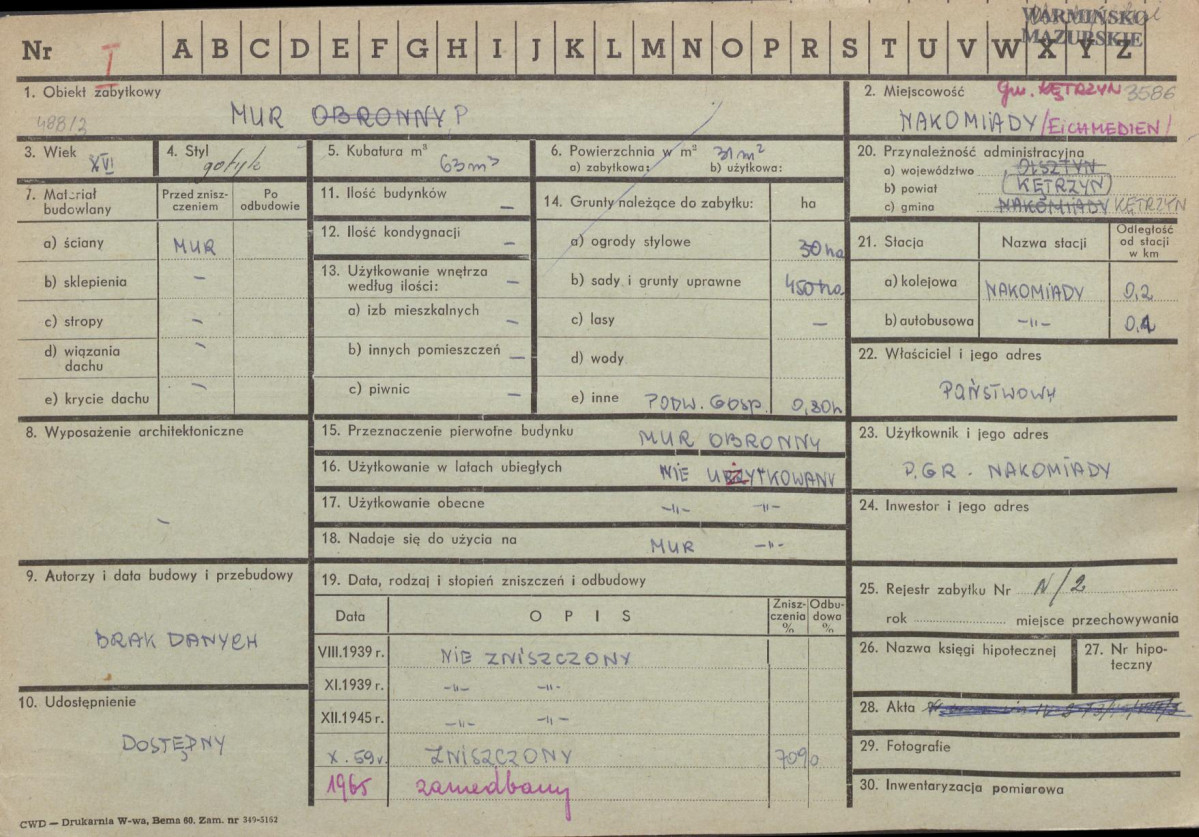 WARMIŃSKO
MAZURSKIE
Nr I A B C D E F G H I J K L M N O P R S T U V W X Y Z
1. Obiekt zabytkowy
488/2
MUR OBRONNY, P
2. Miejscowość gm. KĘTRZYN 3586
NAKOMIADY /EICHMEDIEN/
3. Wiek XVI
4. Styl gotyk
5. Kubatura m³ 63 m³
6. Powierzchnia w m² 31 m²
a) zabytkowa: b) użytkowa:
20. Przynależność administracyjna
a) województwo OLSZTYN
b) powiat KĘTRZYN
c) gmina NAKOMIADY KĘTRZYN
7. Materiał budowlany
Przed zniszczeniem
Po odbudowie
a) ściany MUR
b) sklepienia –
c) stropy –
d) wiązania dachu –
e) krycie dachu –
11. Ilość budynków –
12. Ilość kondygnacji –
13. Użytkowanie wnętrza według ilości: –
a) izb mieszkalnych –
b) innych pomieszczeń –
c) piwnic –
14. Grunty należące do zabytku: ha
a) ogrody stylowe 30 ha
b) sady i grunty uprawne 450 ha
c) lasy –
d) wody
e) inne PODW. GOSP. 0,80 h
21. Stacja
Nazwa stacji
Odległość od stacji w km
a) kolejowa NAKOMIADY 0,2
b) autobusowa –"– 0,1
22. Właściciel i jego adres
PAŃSTWOWY
8. Wyposażenie architektoniczne
–
15. Przeznaczenie pierwotne budynku MUR OBRONNY
16. Użytkowanie w latach ubiegłych NIE UŻYTKOWANY
17. Użytkowanie obecne –"– –"–
18. Nadaje się do użycia na MUR –"–
23. Użytkownik i jego adres
P.GR. NAKOMIADY
24. Inwestor i jego adres
9. Autorzy i data budowy i przebudowy
BRAK DANYCH
19. Data, rodzaj i stopień zniszczeń i odbudowy
Data
OPIS
Zniszczenia %
Odbudowa %
VIII.1939 r. NIE ZNISZCZONY
XI.1939 r. –"– –"–
XII.1945 r. –"– –"–
X. 59 r. ZNISZCZONY 70%
1965 zaniedbany
25. Rejestr zabytku Nr N/2
rok miejsce przechowywania
26. Nazwa księgi hipotecznej
27. Nr hipoteczny
28. Akta
29. Fotografie
30. Inwentaryzacja pomiarowa
10. Udostępnienie
DOSTĘPNY
CWD — Drukarnia W-wa, Bema 60. Zam. nr 349-5162